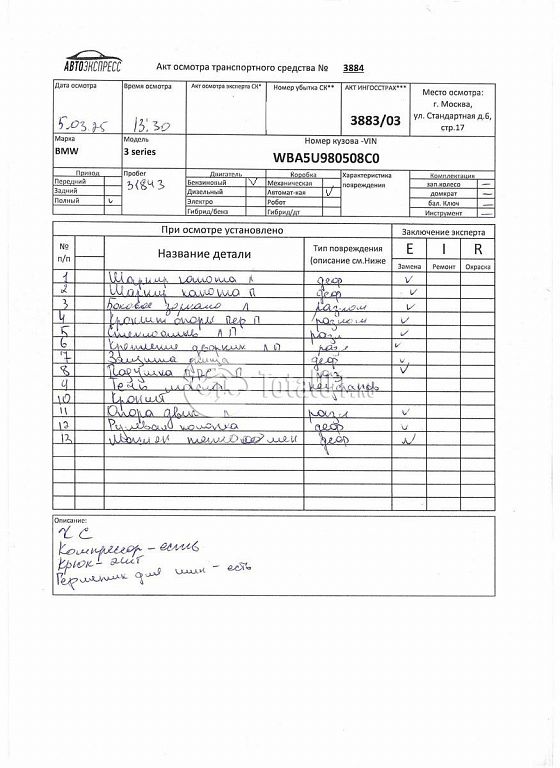 АВТОЭКСПРЕСС
Акт осмотра транспортного средства № 3884
Дата осмотра
Время осмотра
Акт осмотра эксперта СК*
Номер убытка СК**
АКТ ИНГОССТРАХ***
Место осмотра:
г. Москва,
ул. Стандартная д.6,
стр.17
5.03.25
13:30
3883/03
Марка
BMW
Модель
3 series
Номер кузова -VIN
WBA5U980508C0
Привод
Передний
Задний
Полный v
Пробег
31843
Двигатель
Бензиновый v
Дизельный
Электро
Гибрид/бенз
Коробка
Механическая
Автомат-кая v
Робот
Гибрид/дт
Характеристика
повреждения
Комплектация
зап.колесо —
домкрат —
бал. Ключ —
Инструмент —
При осмотре установлено
Заключение эксперта
№
п/п
Название детали
Тип повреждения
(описание см.Ниже
E I R
Замена Ремонт Окраска
1 Шарнир капота Л деф v
2 Шарнир капота П деф v
3 Боковое зеркало Л разлом v
4 П разлом v
5 Л П разл v
6 Крепление дворник Л П разл v
7 Защита днища деф v
8 Подушка ДВС П v
9
10 Кроншт
11 Опора двиг Л разл v
12 Рулевая колонка деф v
13 деф v
Total01.ru
Описание:
К С
Компрессор - есть
Крюк - нет
Герметик для шин - есть